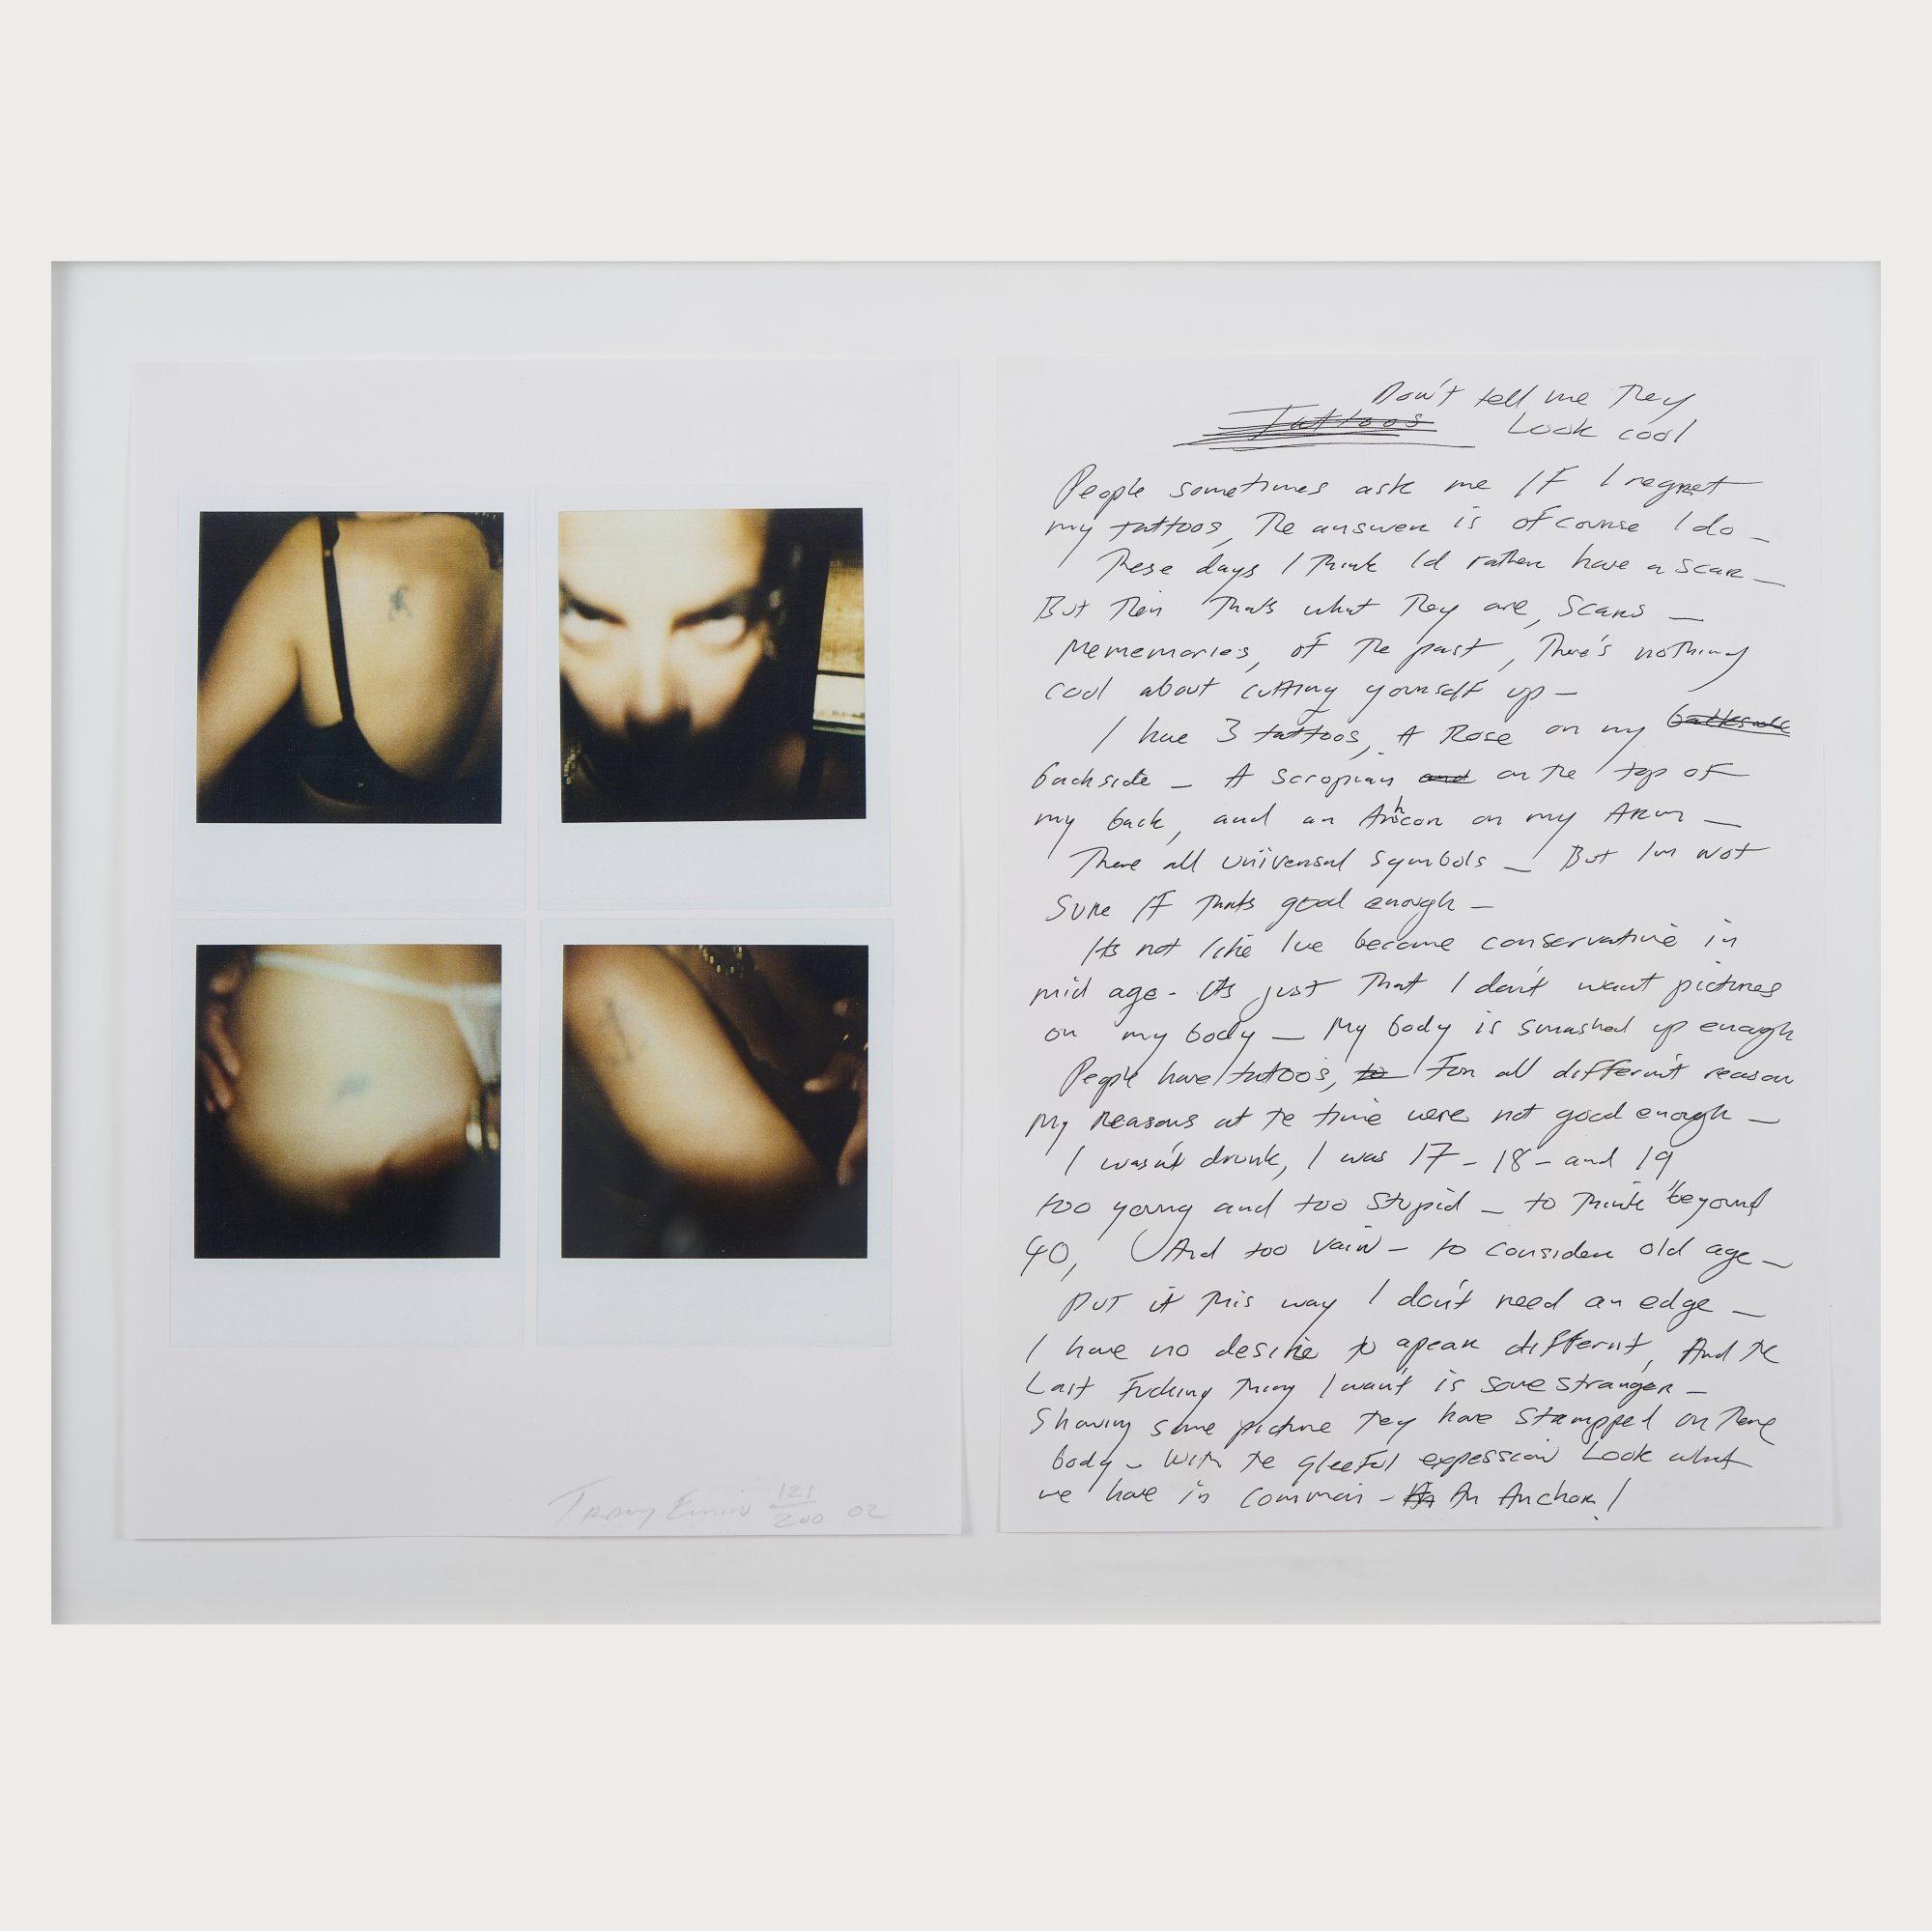 Don't tell me They
Tattoos Look cool
People sometimes ask me IF I regret
my tattoos, The answer is of course I do -
These days I Think Id rather have a scar -
But Then Thats what They are, scars -
Mememories, of The past, There's nothing
cool about cutting yourself up -
I have 3 tattoos, A Rose on my
backside - A scropian and on The top of
my back, and an Anhcor on my Arm -
There all universal symbols - But Im not
Sure IF Thats good enough -
Its not like Ive become conservative in
mid age - Its just That I don't want pictures
on my body - My body is smashed up enough
People have tattoos, to For all differn't reason
My Reasons at te time were not good enough -
I wasn't drunk, I was 17 - 18 - and 19
too young and too Stupid - to Think beyond
40, And too vain - to consider old age -
PUT it This way I don't need an edge -
I have no desire to apear differnt, And te
Last Fucking Thing I want is some stranger -
Showing some picture They have stampped on There
body - With te gleeful expession Look what
we have in common - An An Anchor!
Tracey Emin 121/200 02